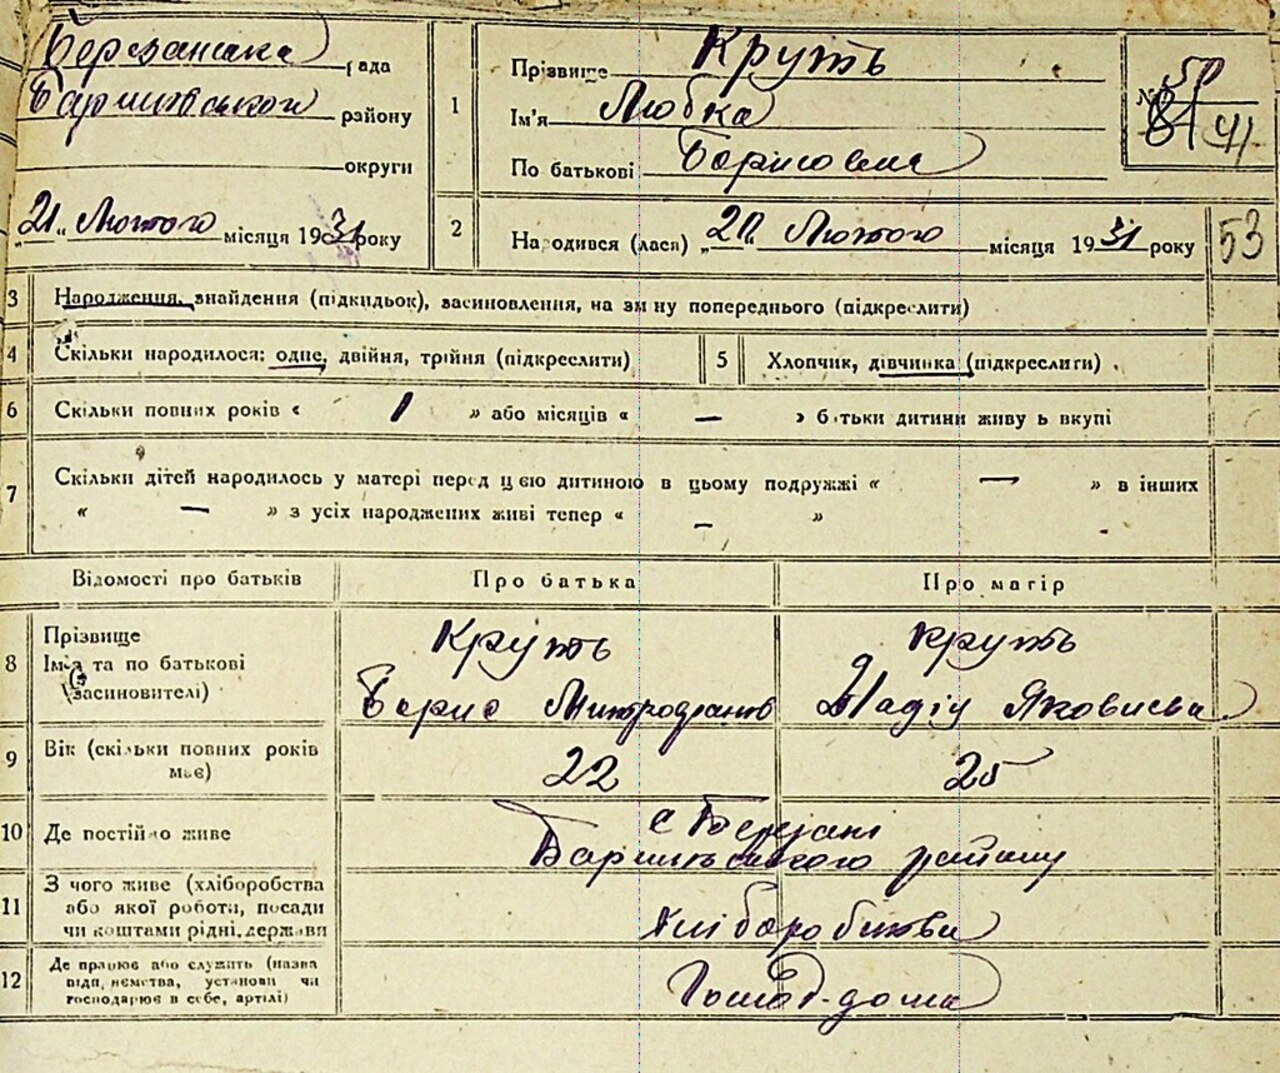 Березанська рада
Баришівського району
округи
„21„ Лютого місяця 1931 року
1
Прізвище Круть
Ім'я Любка
По батькові Борисовна
№ 50
81 41
2
Народився (лася) „20„ Лютого місяця 1931 року
53
3
Народження, знайдення (підкидьок), засиновлення, на зміну попереднього (підкреслити)
4
Скільки народилося: одне, двійня, трійня (підкреслити)
5
Хлопчик, дівчинка (підкреслити)
6
Скільки повних років « 1 » або місяців « — » батьки дитини живуть вкупі
7
Скільки дітей народилось у матері перед цією дитиною в цьому подружжі « — » в інших
« — » з усіх народжених живі тепер « — »
Відомості про батьків
Про батька
Про матір
8
Прізвище
Ім'я та по батькові
(засиновителі)
Круть
Борис Митрофанов
Круть
Надія Яковлевна
9
Вік (скільки повних років
має)
22
25
10
Де постійно живе
с Березані
Баришівського району
11
З чого живе (хліборобства
або якої роботи, посади
чи коштами рідні, держави
Хліборобства
12
Де працює або служить (назва
підприємства, установи чи
господарює в себе, артілі)
дома